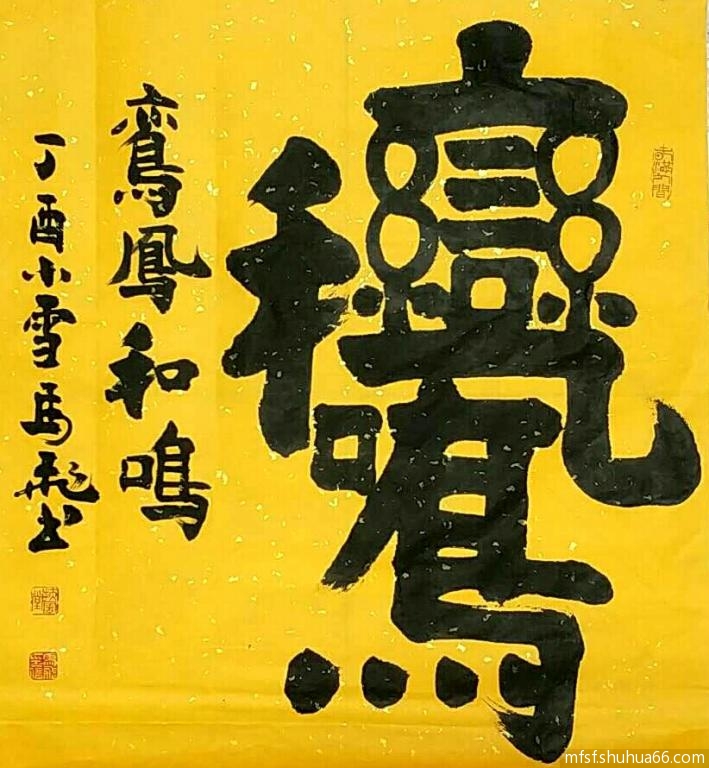 鸾鳳和鳴
丁酉小雪馬飛书
mfsf.shuhua66.com